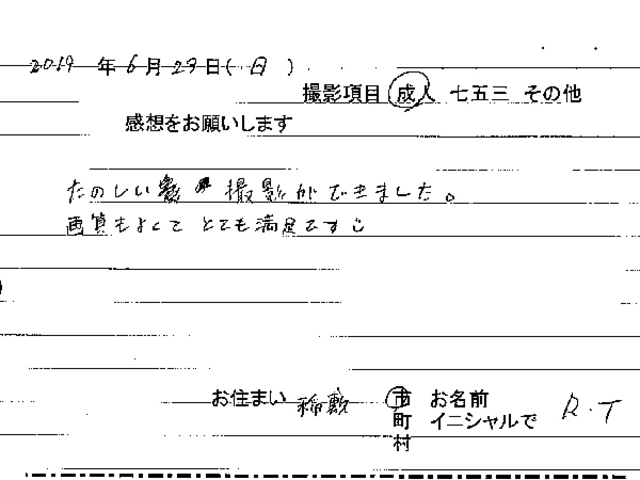 2019 年 6月 23日( 日 )
撮影項目 成人 七五三 その他
感想をお願いします
たのしい 撮影ができました。
画質もよくて とても満足です
お住まい 稲敷 市 お名前 R.T
町 イニシャルで
村